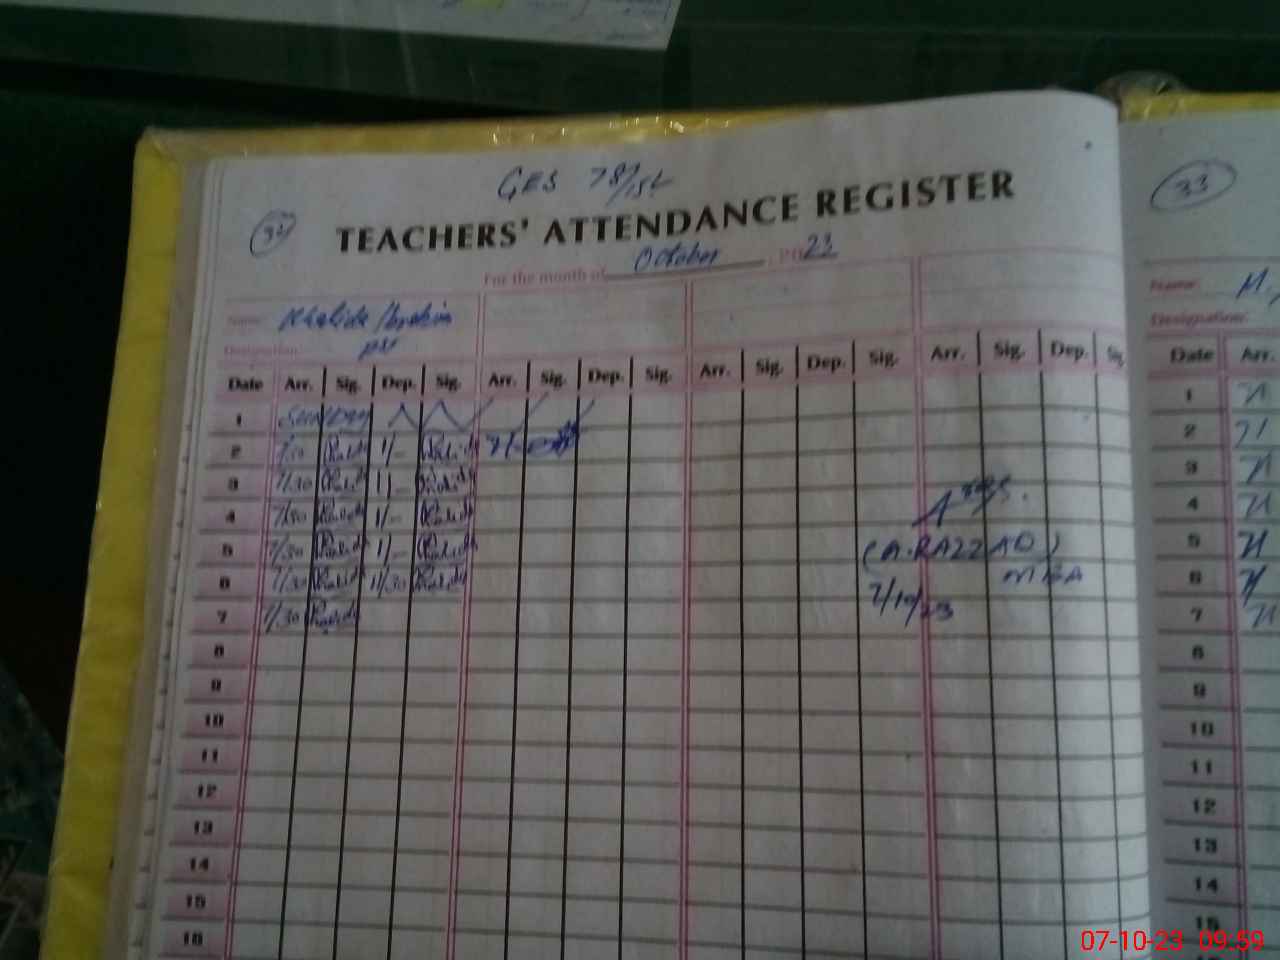 GES 78/15L
32
33
TEACHERS' ATTENDANCE REGISTER
For the month of October 2023
Name: Khalida Ibrahim
Name: M.
Designation: PST
Designation:
Date Arr. Sig. Dep. Sig. Arr. Sig. Dep. Sig. Arr. Sig. Dep. Sig. Arr. Sig. Dep. Sig.
Date Arr.
1 SUNDAY
2 7/30 Khalida 1/- Khalida 7/-
3 7/30 Khalida 1/- Khalida
4 7/30 Khalida 1/- Khalida
5 7/30 Khalida 1/- Khalida (A.RAZZAQ)
6 7/30 Khalida 11/30 Khalida MEA
7 7/30 Khalida 7/10/23
8
9
10
11
12
13
14
15
16
1 7/
2 7/
3 7/
4 7/
5 7/
6 7/
7 7/
8
9
10
11
12
13
14
15
07-10-23 09:59